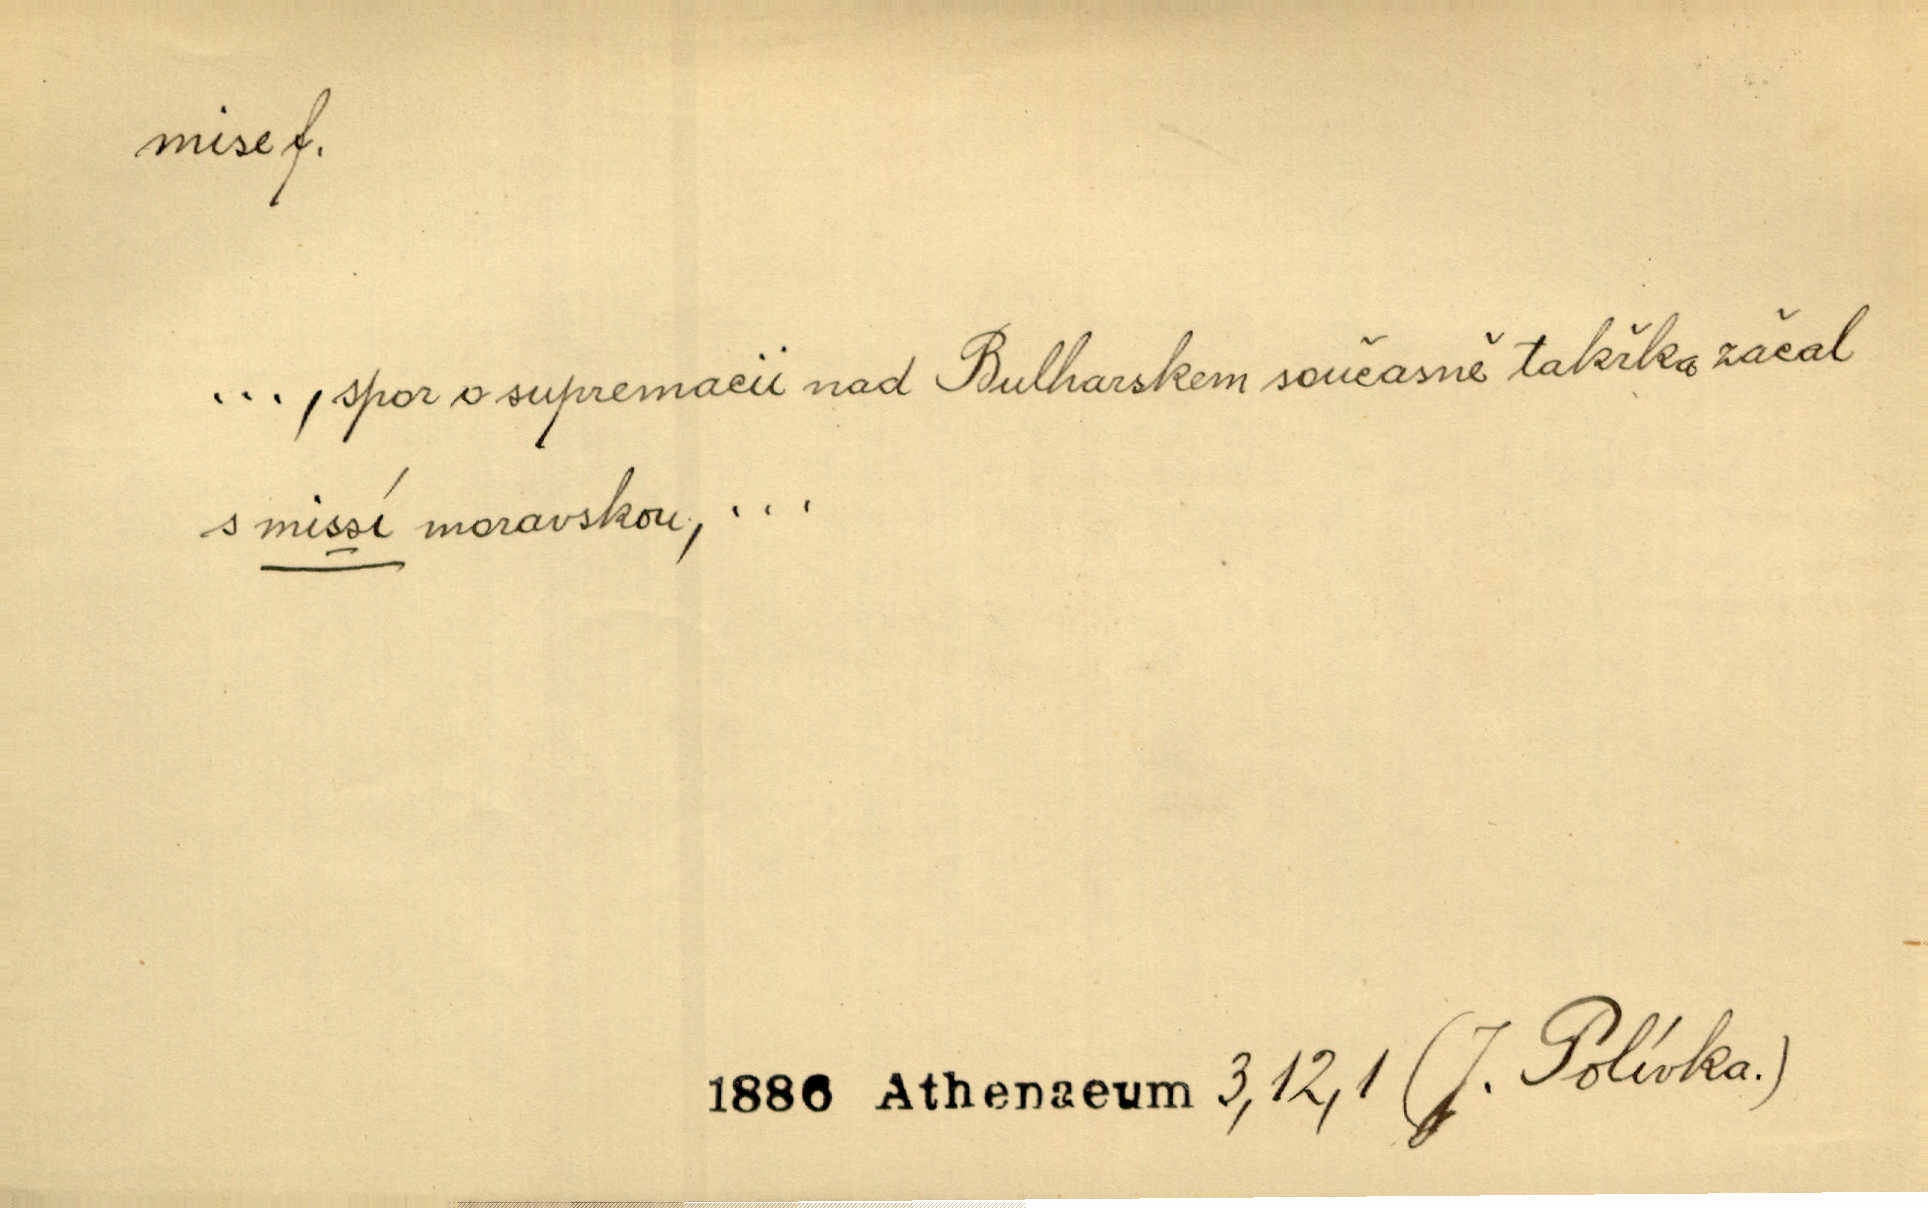 mise f.
..., spor o supremacii nad Bulharskem současně takřka začal
s missí moravskou, ...
1886 Athenaeum 3,12,1 (J. Polívka.)